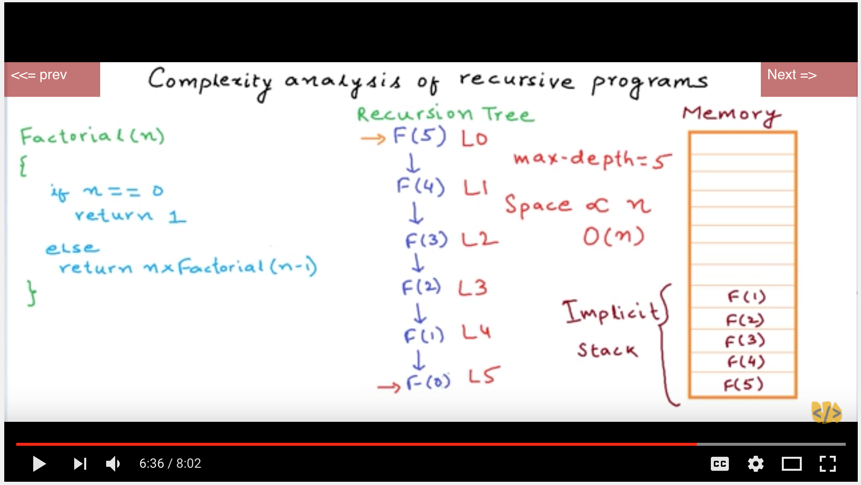 <<= prev
Next =>
Complexity analysis of recursive programs
Factorial(n)
{
if n == 0
return 1
else
return n×Factorial(n-1)
}
Recursion Tree
→ F(5) L0
↓
F(4) L1
↓
F(3) L2
↓
F(2) L3
↓
F(1) L4
↓
→ F(0) L5
max-depth=5
Space ∝ n
O(n)
Memory
Implicit
Stack
F(1)
F(2)
F(3)
F(4)
F(5)
</>
6:36 / 8:02
CC